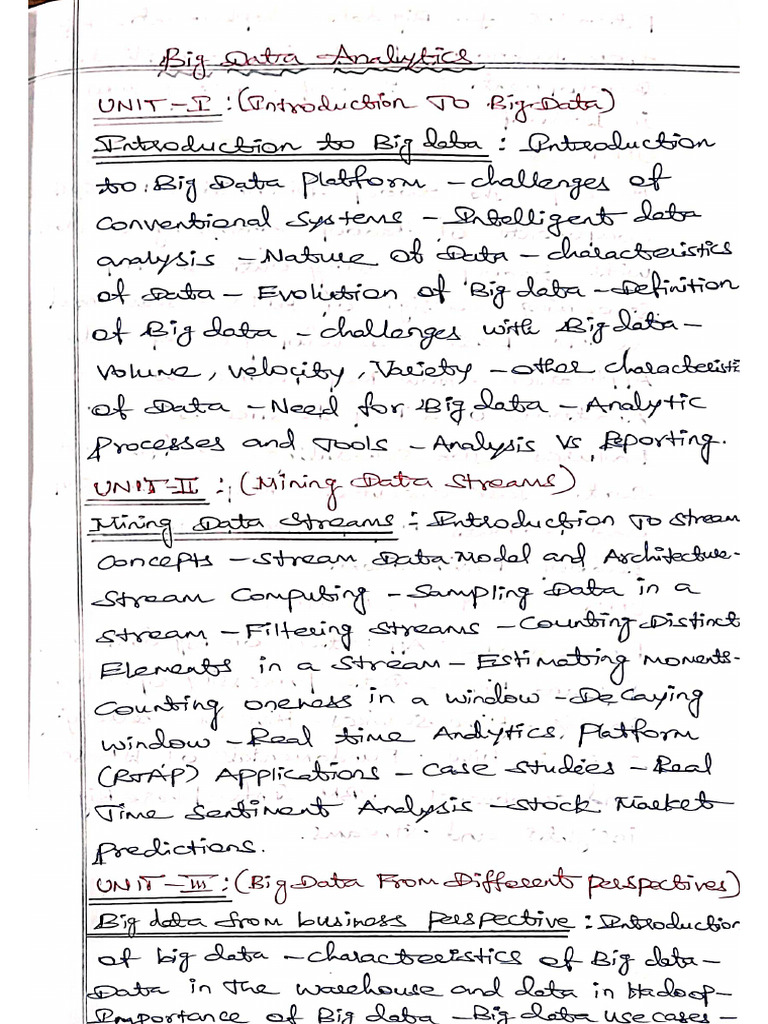 Big Data Analytics
UNIT-I : (Introduction To Big Data)
Introduction to Big data : Introduction
to Big Data Platform - challenges of
conventional systems - Intelligent data
analysis - Nature of Data - characteristics
of Data - Evolution of Big data - Definition
of Big data - challenges with Big data -
Volume, velocity, Variety - other characteristi
of Data - Need for Big data - Analytic
Processes and Tools - Analysis Vs Reporting.
UNIT-II : (Mining Data Streams)
Mining Data Streams : Introduction To Stream
Concepts - Stream Data Model and Architecture -
Stream Computing - Sampling Data in a
Stream - Filtering Streams - Counting Distinct
Elements in a Stream - Estimating moments -
Counting oneness in a window - Decaying
window - Real time Analytics Platform
(RTAP) Applications - Case Studies - Real
Time Sentiment Analysis - Stock Market
Predictions.
UNIT-III : (Big Data From Different perspectives)
Big data from business Perspective : Introduction
of big data - characteristics of Big data -
Data in the warehouse and data in Hadoop -
Importance of Big data - Big data use cases -